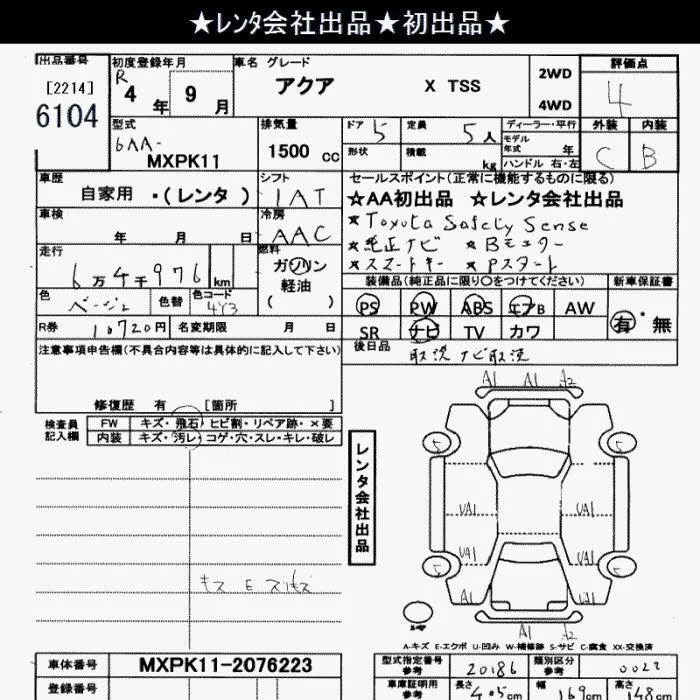 ★レンタ会社出品★初出品★
出品番号 初度登録年月 車名 グレード 評価点
[2214] R 4 年 9 月 アクア X TSS 2WD 4
6104 4WD
型式 排気量 ドア 5 定員 5人 ディーラー・平行 外装 内装
6AA- モデル
MXPK11 1500 cc 形状 積載 kg 年式 年 C B
ハンドル 右・左
車歴 シフト セールスポイント(正常に機能するものに限る)
自家用 ・(レンタ ) IAT ★AA初出品 ★レンタ会社出品
車検 冷房 ★Toyota Safety Sense
年 月 日 AAC ★純正ナビ ★Bモニター
走行 燃料 ★スマートキー ★Pスタート
6万4千976 km ガソリン 装備品(純正品に限り〇をつけてください) 新車保証書
軽油
色 ベージュ 色替 色コード 4Y3 ( ) PS PW ABS エアB AW 有・無
R券 10720円 名変期限 月 日 SR ナビ TV カワ
注意事項申告欄(不具合内容等は具体的に記入して下さい) 後日品 取説 ナビ取説
修復歴 有 [箇所 ]
A1 A1 A2
検査員 FW キズ・飛石・ヒビ割・リペア跡・×要
記入欄 内装 キズ・汚レ・コゲ・穴・スレ・キレ・破レ
レンタ会社出品
5 5
UA1 UA1
UA1 UA1
5 5
キズ E スリキズ
UA1
A1 A2
A-キズ E-エクボ U-凹み W-補修跡 S-サビ C-腐食 XX-交換済
車体番号 MXPK11-2076223 型式指定番号 参考 20186 類別区分 参考 0022
登録番号 車庫証明用 参考 長さ 405cm 幅 169cm 高さ 148cm